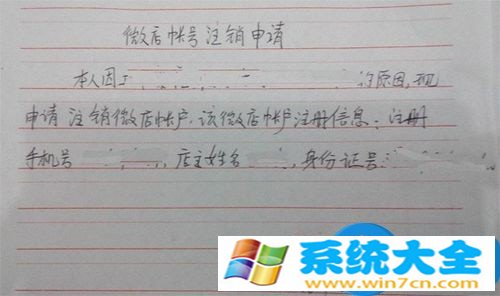 微店帐号注销申请
本人因 的原因,现
申请注销微店帐户.该微店帐户注册信息:注册
手机号 ,店主姓名 ,身份证号:
系统大全
www.win7cn.com